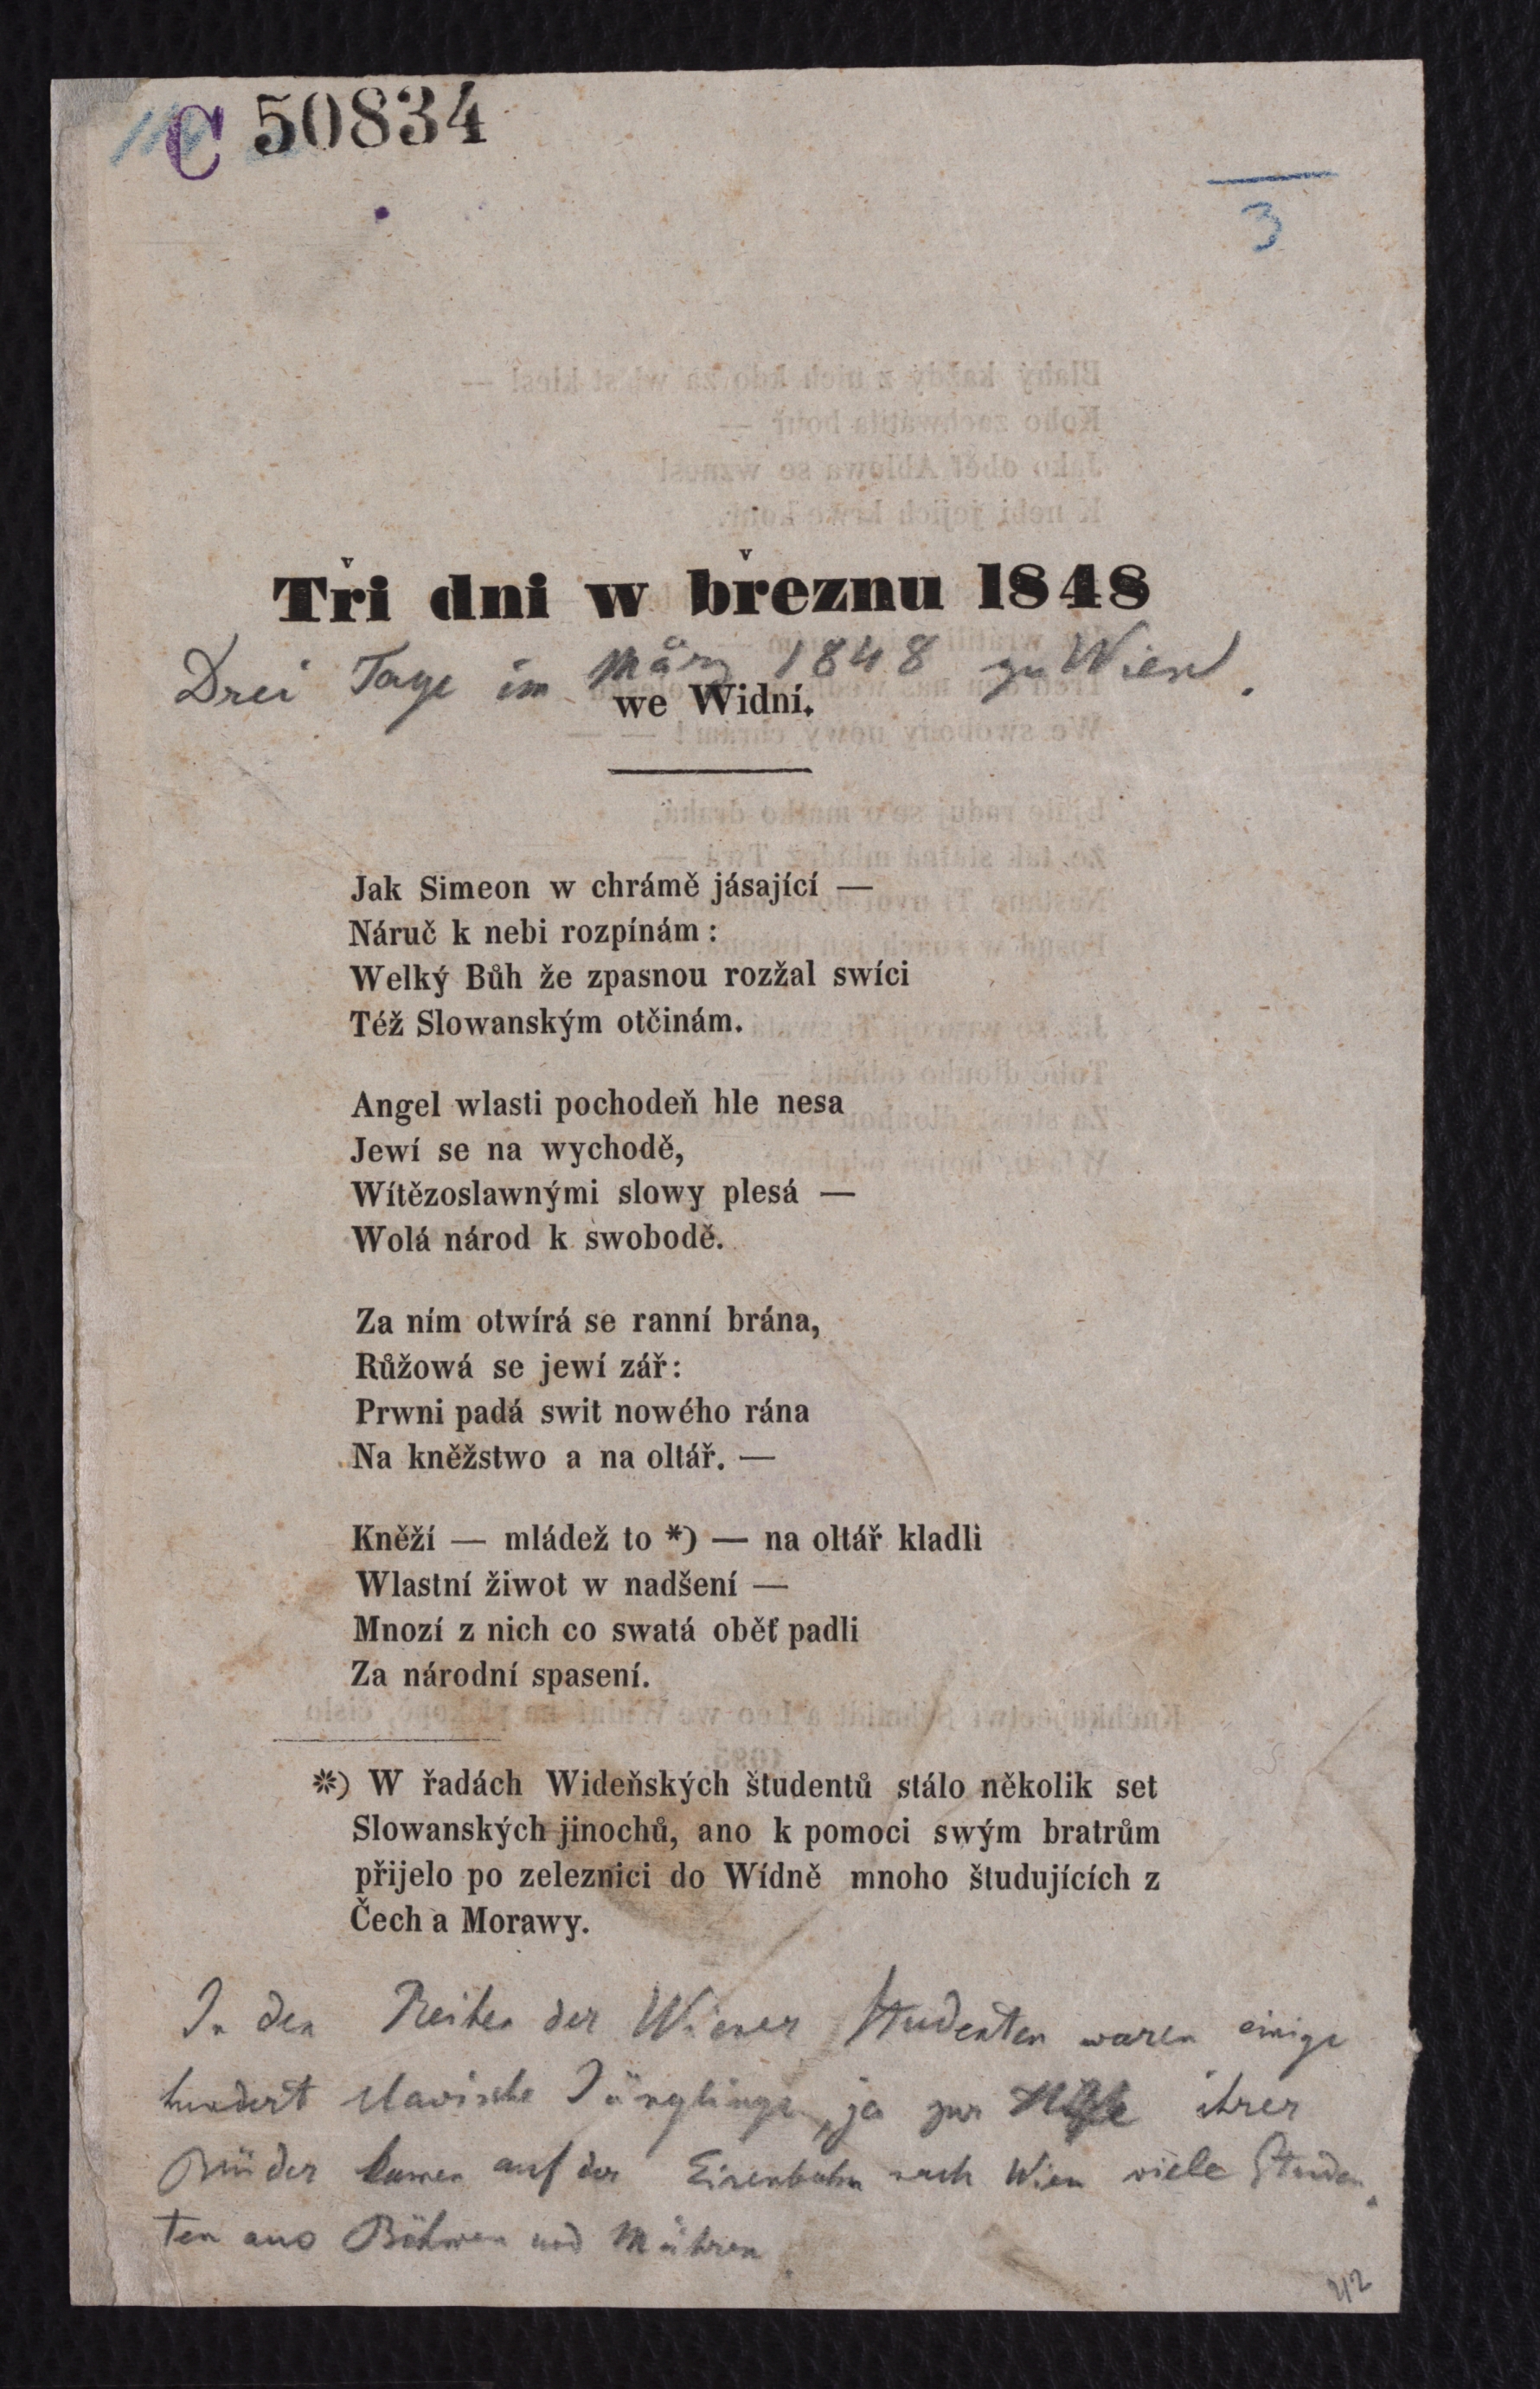 C 50834
3
Tři dni w březnu 1848
Drei Tage im März 1848 zu Wien.
we Widní.
Jak Simeon w chrámě jásající —
Náruč k nebi rozpínám :
Welký Bůh že zpasnou rozžal swíci
Též Slowanským otčinám.
Angel wlasti pochodeň hle nesa
Jewí se na wychodě,
Wítězoslawnými slowy plesá —
Wolá národ k swobodě.
Za ním otwírá se ranní brána,
Růžowá se jewí zář:
Prwni padá swit nowého rána
Na kněžstwo a na oltář. —
Kněží — mládež to *) — na oltář kladli
Wlastní žiwot w nadšení —
Mnozí z nich co swatá oběť padli
Za národní spasení.
*) W řadách Wideňských študentů stálo několik set
Slowanských jinochů, ano k pomoci swým bratrům
přijelo po zeleznici do Wídně mnoho študujících z
Čech a Morawy.
In den Reihen der Wiener Studenten waren einige
hundert slavische Jünglinge, ja zur Hilfe ihrer
Brüder kamen auf der Eisenbahn nach Wien viele Studen
ten aus Böhmen und Mähren.
42